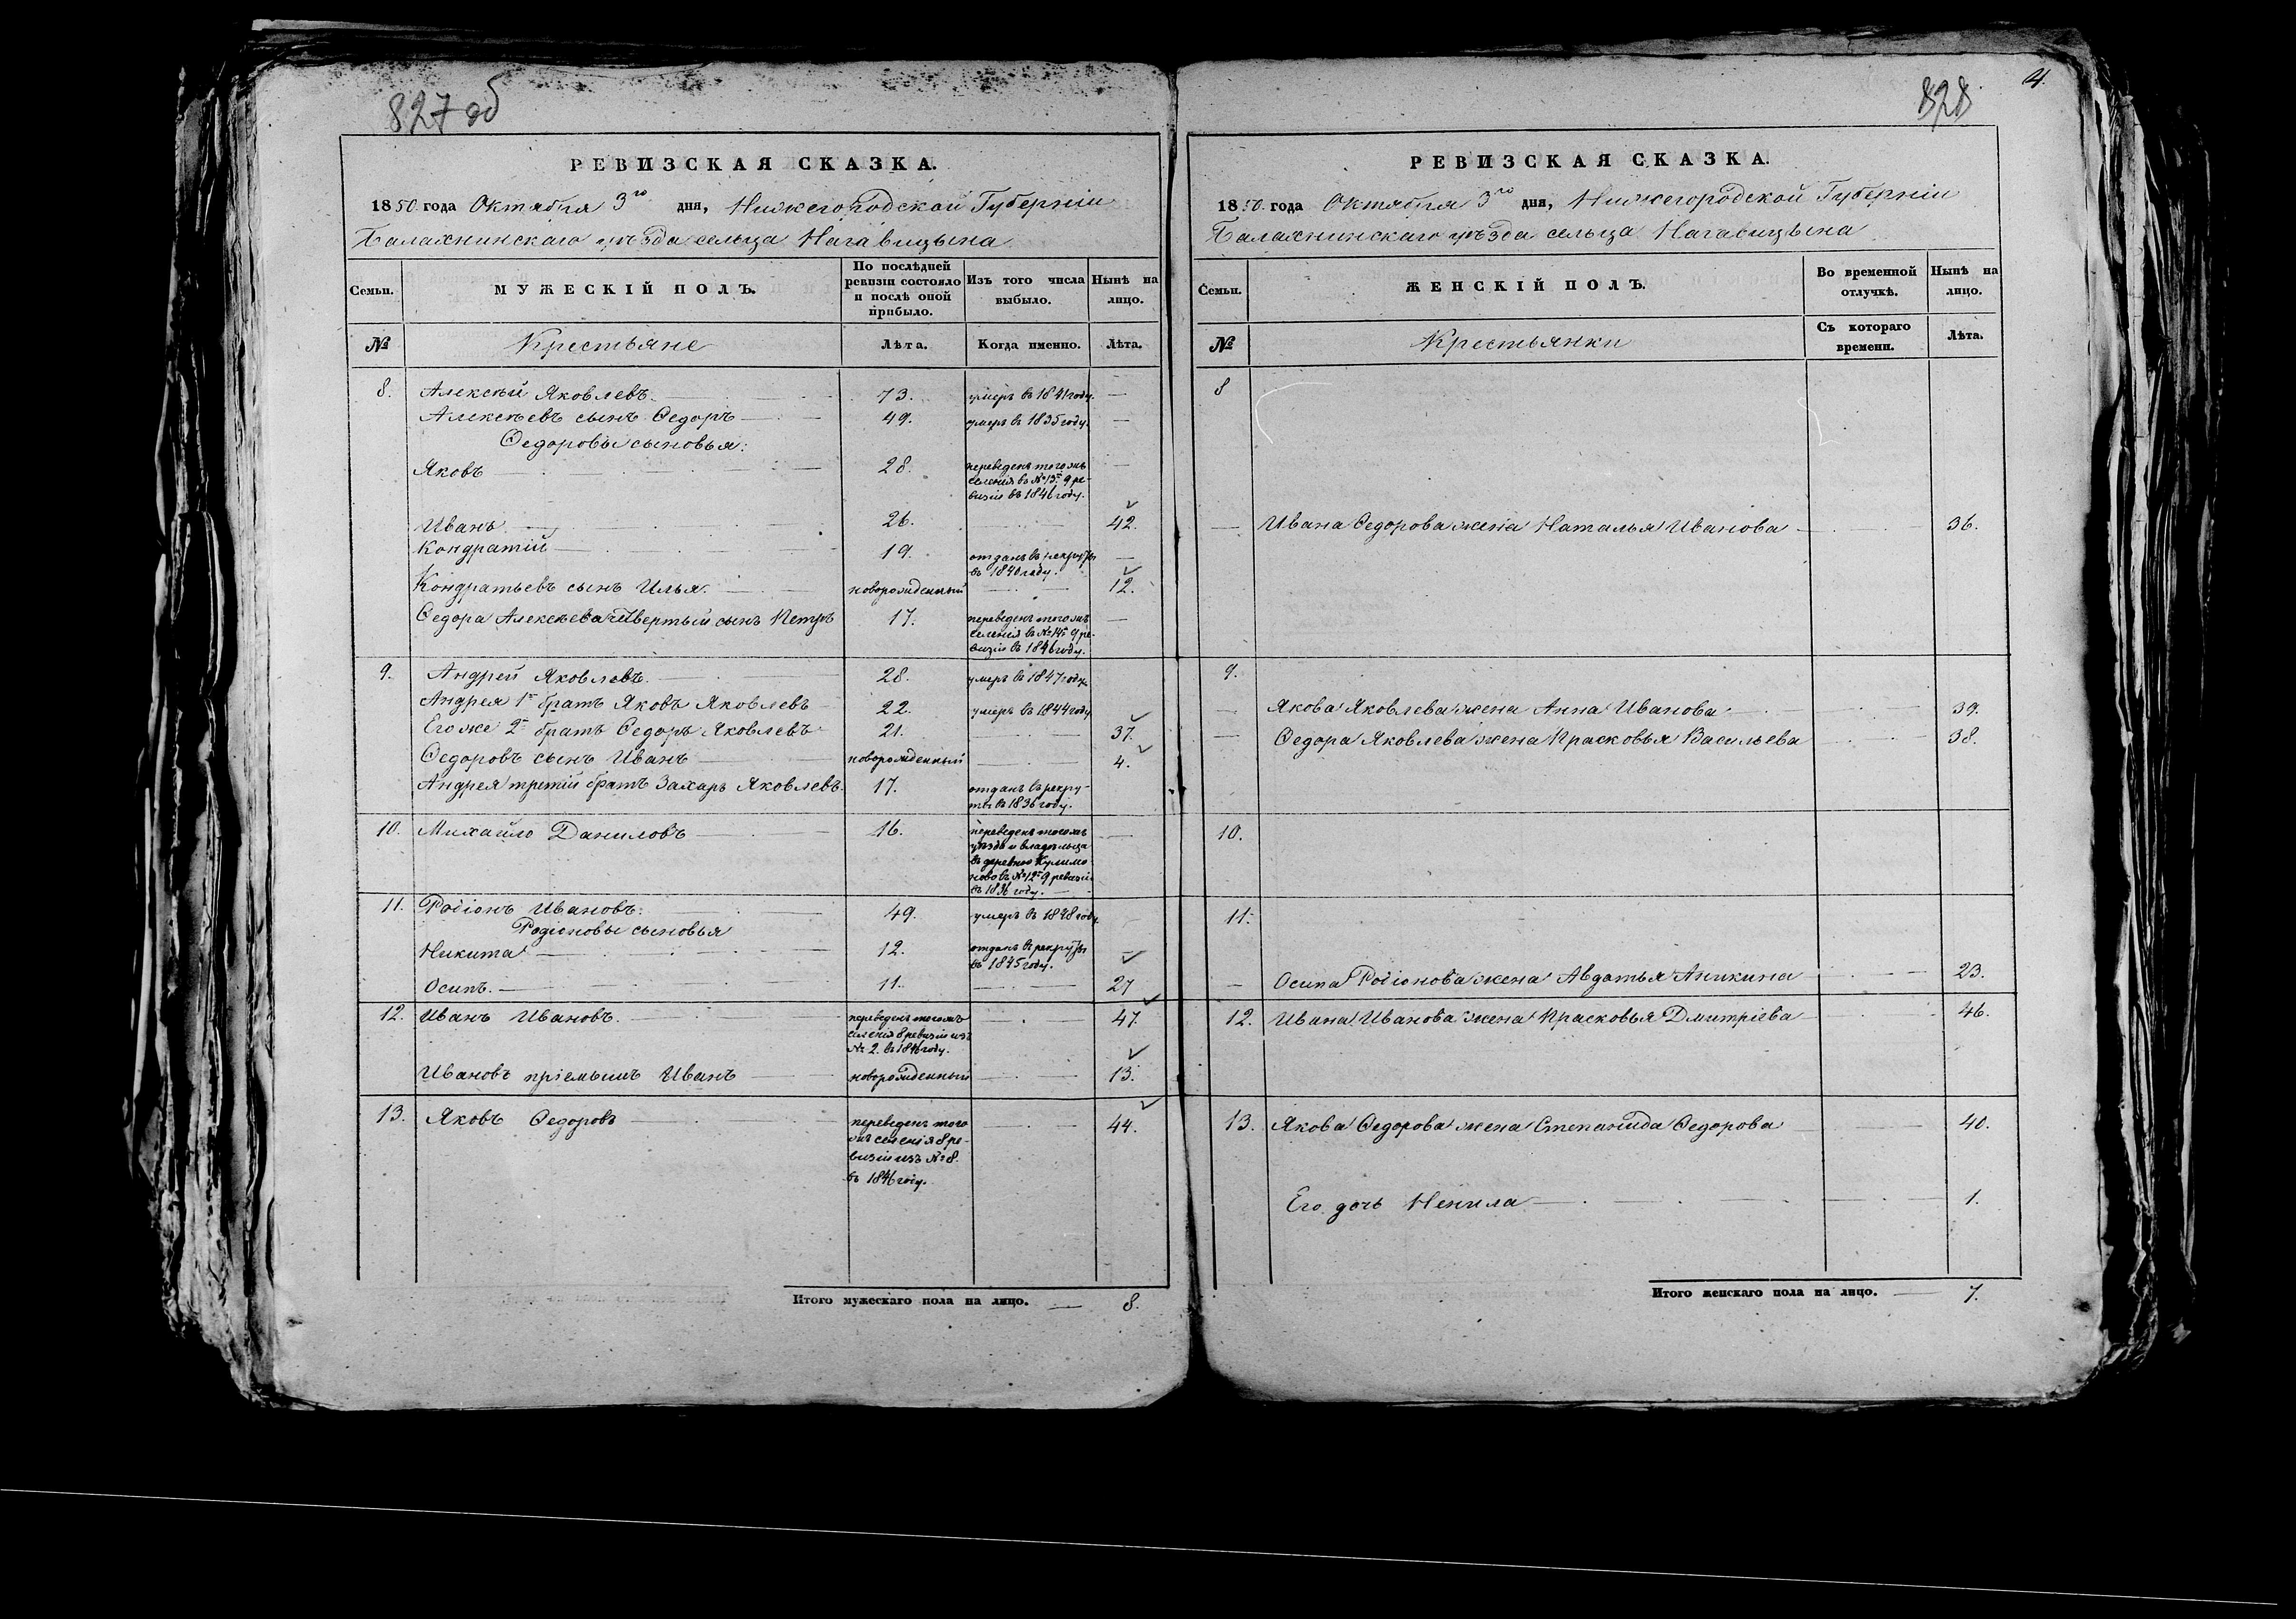 827 об
РЕВИЗСКАЯ СКАЗКА.
1850 года Октября 3го дня, Нижегородской Губерніи
Балахнинскаго уѣзда сельца Нагавицына
Семьи.
МУЖЕСКІЙ ПОЛЪ.
По послѣдней ревизіи состояло и послѣ оной прибыло.
Изъ того числа выбыло.
Нынѣ на лицо.
№
Крестьяне
Лѣта.
Когда именно.
Лѣта.
8. Алексѣй Яковлевъ. 73. умеръ въ 1841 году. —
Алексѣевъ сынъ Ѳедоръ 49. умеръ въ 1835 году. —
Ѳедоровы сыновья:
Яковъ 28. переведенъ тогожъ —
селенія въ №13й 9 ре-
визіи въ 1846 году.
Иванъ 26. — 42.
Кондратій 19. отданъ въ рекруты —
въ 1840 году.
Кондратьевъ сынъ Илья. новорожденный — 12.
Ѳедора Алексѣева четвертый сынъ Петръ 17. переведенъ тогожъ —
селенія въ №14й 9 ре-
визіи въ 1846 году.
9. Андрей Яковлевъ. 28. умеръ въ 1847 году.
Андрея 1й братъ Яковъ Яковлевъ 22. умеръ въ 1844 году
Его же 2й братъ Ѳедоръ Яковлевъ 21. — 37.
Ѳедоровъ сынъ Иванъ новорожденный — 4.
Андрея третій братъ Захаръ Яковлевъ. 17. отданъ въ рекру-
ты въ 1836 году.
10. Михайло Даниловъ 16. переведенъ тогожъ —
уѣзда и владѣльца
въ деревню
въ №12й 9 ревизіи
въ 1836 году.
11. Родіонъ Ивановъ. 49. умеръ въ 1848 году.
Родіоновы сыновья
Никита 12. отданъ въ рекруты —
въ 1845 году.
Осипъ. 11. — 27
12. Иванъ Ивановъ. переведенъ тогожъ — 47.
селенія 8 ревизіи изъ
№ 2. въ 1846 году.
Ивановъ пріемышъ Иванъ новорожденный — 13.
13. Яковъ Ѳедоровъ переведенъ того — 44.
жъ селенія 8 ре-
визіи изъ № 8.
въ 1846 году.
Итого мужескаго пола на лицо. — 8.
828
4.
РЕВИЗСКАЯ СКАЗКА.
1850. года Октября 3го дня, Нижегородской Губерніи
Балахнинскаго уѣзда сельца Нагавицына
Семьи.
ЖЕНСКІЙ ПОЛЪ.
Во временной отлучкѣ.
Нынѣ на лицо.
№
Крестьянки
Съ котораго времени.
Лѣта.
8
— Ивана Ѳедорова жена Наталья Иванова — 36.
9.
— Якова Яковлева жена Анна Иванова — 39.
— Ѳедора Яковлева жена Прасковья Васильева — 38.
10.
11.
— Осипа Родіонова жена Авдотья Аникина — 23.
12. Ивана Иванова жена Прасковья Дмитріева — 46.
13. Якова Ѳедорова жена Степанида Ѳедорова — 40.
Его дочь Ненила — 1.
Итого женскаго пола на лицо. — 7.